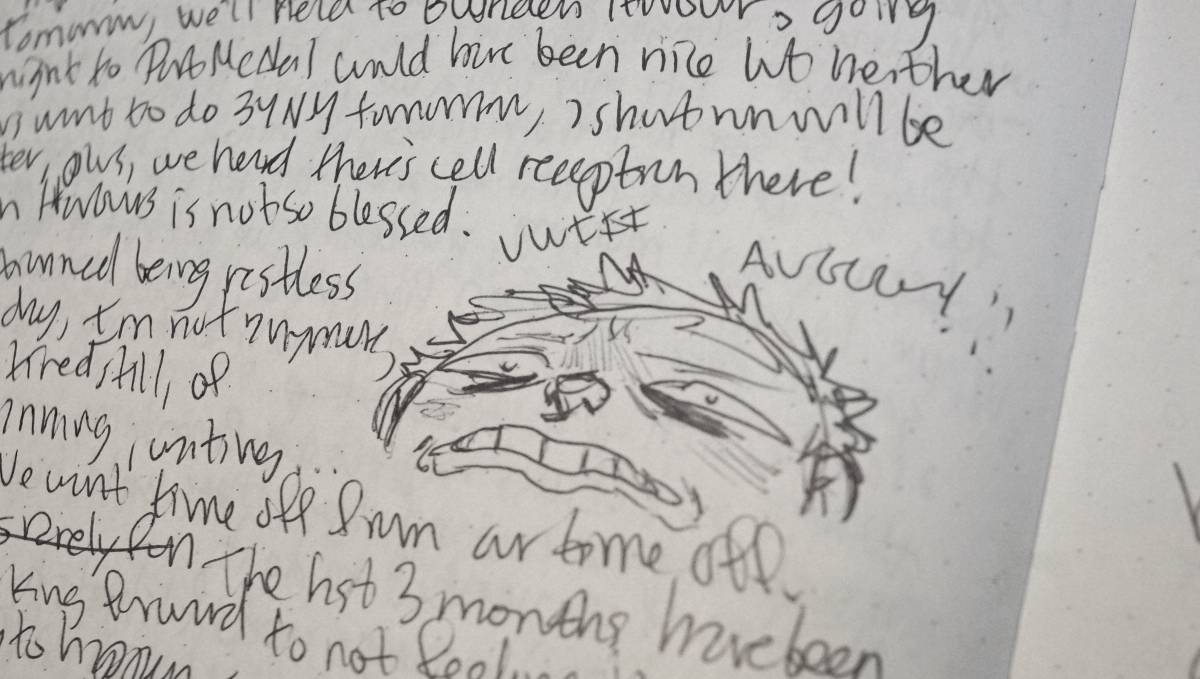 tomorrow, we'll head to Bunden Harbour, going
night to Port McNeil could have been nice but neither
us want to do 34NM tomorrow, a short run will be
ter, plus, we heard there's cell reception there!
n Harbour is not so blessed.
being restless
day, I'm not anymore,
tired still, of
nning, writing...
We want time off from our time off.
rarely fun The last 3 months have been
king forward to not feeling
to happen